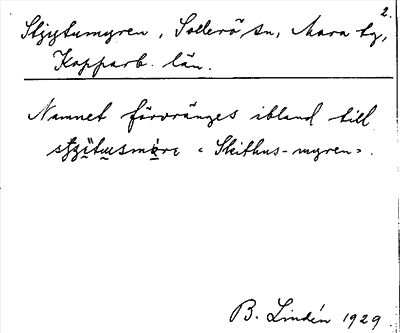 2.
Styggtumyren, Sollerö sn, Mora tg,
Kopparb. län.
Namnet förvränges ibland till
"Skithus-myren".
B. Lindén 1929